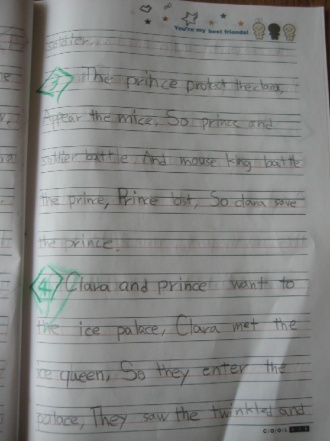 You're my best friends!
soldier.
3 The prince protect the clara,
Appear the mice, So prince and
soldier battle And mouse king battle
the prince, Prince lost, So clara save
the prince.
4 Clara and prince want to
the ice palace, Clara met the
ice queen, So they enter the
palace, They saw the twinkled and